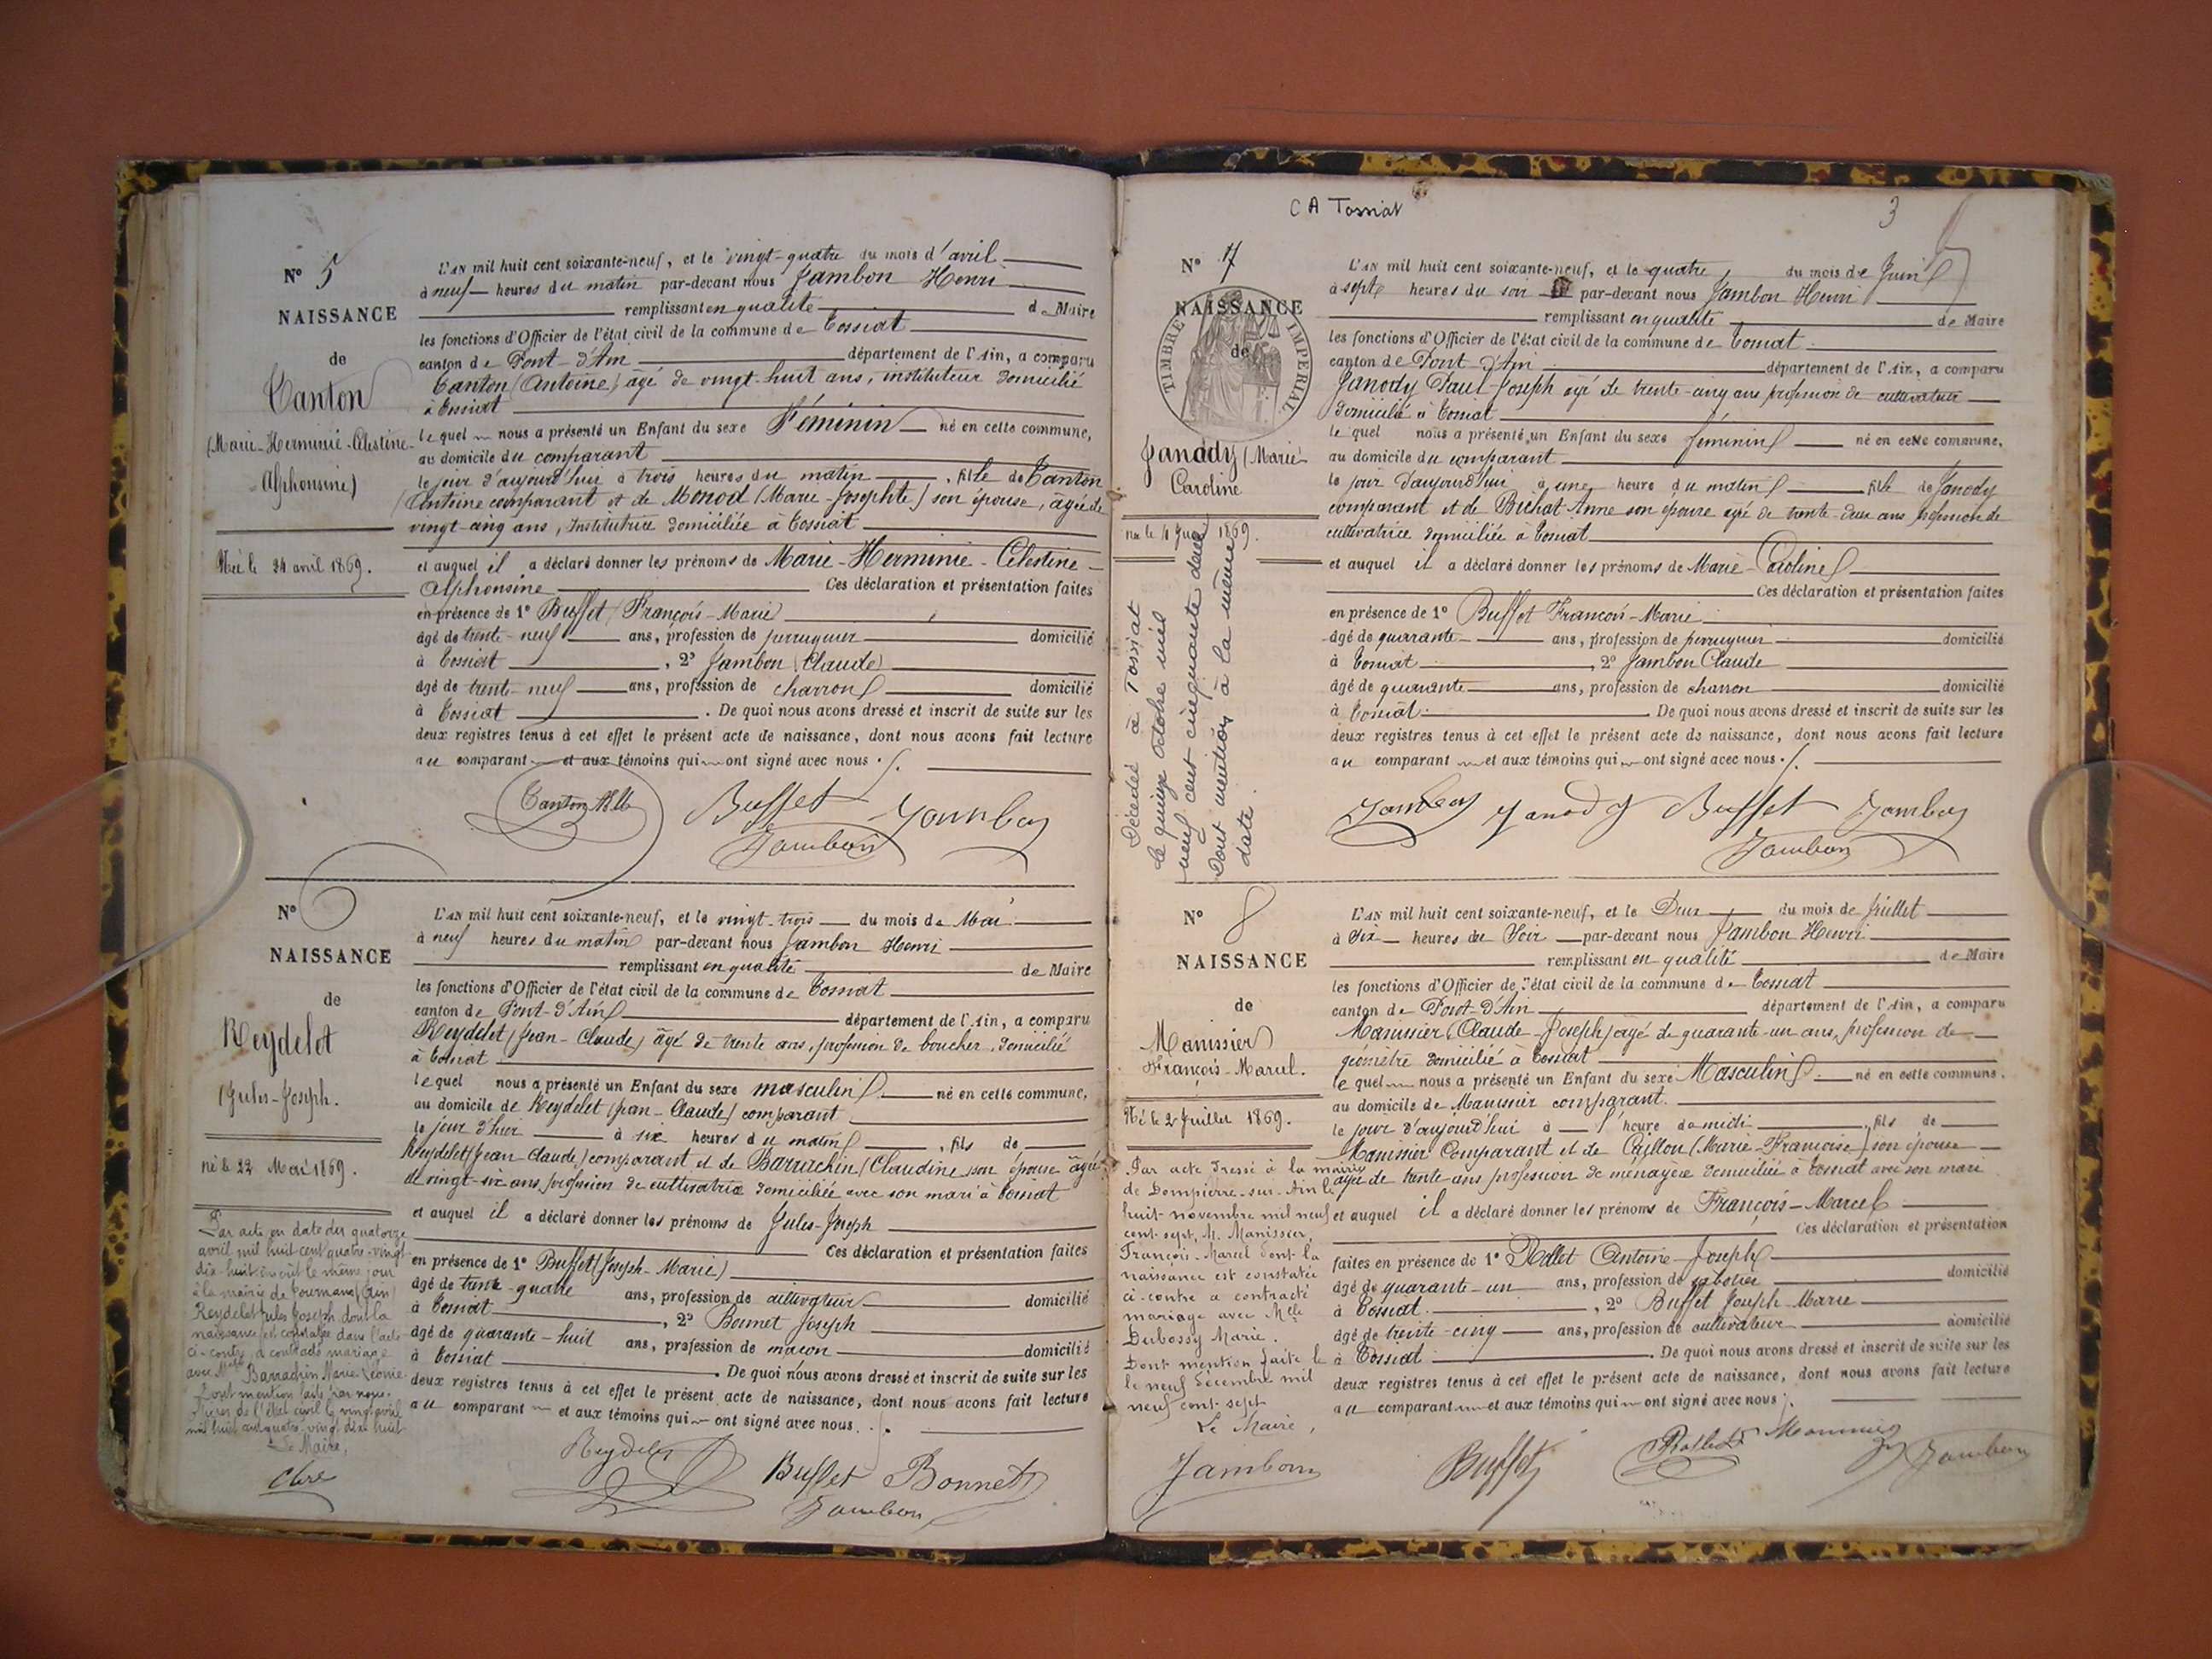 N° 5
NAISSANCE
de
Canton
(Marie-Herminie-Célestine-
Alphonsine)
Née le 24 avril 1869.
L'AN mil huit cent soixante-neuf, et le vingt-quatre du mois d'avril
à neuf heures du matin par-devant nous Jambon Henri
remplissant en qualité de Maire
les fonctions d'Officier de l'état civil de la commune de Tossiat
canton de Pont-d'Ain département de l'Ain, a comparu
Canton (Antoine) âgé de vingt-huit ans, instituteur domicilié
à Tossiat
lequel nous a présenté un Enfant du sexe Féminin né en cette commune,
au domicile du comparant
le jour d'aujourd'hui à trois heures du matin, fille de Canton
(Antoine comparant et de Monod (Marie-Josephte) son épouse, âgée de
vingt-cinq ans, Institutrice domiciliée à Tossiat
et auquel il a déclaré donner les prénoms de Marie-Herminie-Célestine-
Alphonsine Ces déclaration et présentation faites
en présence de 1° Buffet (François-Marie)
âgé de trente-neuf ans, profession de perruquier domicilié
à Tossiat, 2° Jambon (Claude)
âgé de trente-neuf ans, profession de charron domicilié
à Tossiat. De quoi nous avons dressé et inscrit de suite sur les
deux registres tenus à cet effet le présent acte de naissance, dont nous avons fait lecture
au comparant et aux témoins qui ont signé avec nous./.
Canton Buffet Jambon
Jambon
N° 6
NAISSANCE
de
Reydelet
(Jules-Joseph.
né le 22 Mai 1869.
Par acte en date du quatorze
avril mil huit cent quatre-vingt
dix-huit inscrit le même jour
à la mairie de Journans (Ain)
Reydelet Jules Joseph dont la
naissance est constatée dans l'acte
ci-contre a contracté mariage
avec Melle Barrachin Marie Léonie.
Dont mention faite par nous
de l'état civil le vingt avril
mil huit cent quatre-vingt dix-huit
Le Maire,
L'AN mil huit cent soixante-neuf, et le vingt-trois du mois de Mai
à neuf heures du matin par-devant nous Jambon Henri
remplissant en qualité de Maire
les fonctions d'Officier de l'état civil de la commune de Tossiat
canton de Pont-d'Ain département de l'Ain, a comparu
Reydelet (Jean-Claude) âgé de trente ans, profession de boucher, domicilié
à Tossiat
lequel nous a présenté un Enfant du sexe masculin né en cette commune,
au domicile de Reydelet (Jean-Claude) comparant
le jour d'hier à six heures du matin, fils de
Reydelet (Jean-Claude) comparant et de Barrachin (Claudine son épouse âgée
de vingt-six ans, profession de cultivatrice domiciliée avec son mari à Tossiat
et auquel il a déclaré donner les prénoms de Jules-Joseph
Ces déclaration et présentation faites
en présence de 1° Buffet (Joseph-Marie)
âgé de trente-quatre ans, profession de cultivateur domicilié
à Tossiat, 2° Bonnet Joseph
âgé de quarante-huit ans, profession de maçon domicilié
à Tossiat. De quoi nous avons dressé et inscrit de suite sur les
deux registres tenus à cet effet le présent acte de naissance, dont nous avons fait lecture
au comparant et aux témoins qui ont signé avec nous./.
Reydelet Buffet Bonnet
Jambon
CA Tossiat
3
N° 7
NAISSANCE
de
TIMBRE IMPERIAL
Janody (Marie-
Caroline
née le 4 Juin 1869.
Décédée à Tossiat
le quinze octobre mil
neuf cent cinquante deux
Dont mention à la même
date.
L'AN mil huit cent soixante-neuf, et le quatre du mois de Juin
à sept heures du soir par-devant nous Jambon Henri
remplissant en qualité de Maire
les fonctions d'Officier de l'état civil de la commune de Tossiat
canton de Pont d'Ain département de l'Ain, a comparu
Janody Paul-Joseph âgé de trente-cinq ans profession de cultivateur
domicilié à Tossiat
lequel nous a présenté un Enfant du sexe féminin né en cette commune,
au domicile du comparant
le jour d'aujourd'hui à une heure du matin fille de Janody
comparant et de Bichat Anne son épouse âgé de trente-deux ans profession de
cultivatrice domiciliée à Tossiat
et auquel il a déclaré donner les prénoms de Marie-Caroline
Ces déclaration et présentation faites
en présence de 1° Buffet François-Marie
âgé de quarante ans, profession de perruquier domicilié
à Tossiat, 2° Jambon Claude
âgé de quarante ans, profession de charron domicilié
à Tossiat. De quoi nous avons dressé et inscrit de suite sur les
deux registres tenus à cet effet le présent acte de naissance, dont nous avons fait lecture
au comparant et aux témoins qui ont signé avec nous./.
Jambon Janody Buffet Jambon
Jambon
N° 8
NAISSANCE
de
Manissier
François-Marcel.
Né le 2 Juillet 1869.
Par acte dressé à la mairie
de Dompierre-sur-Ain le
huit novembre mil neuf
cent sept, M. Manissier,
François-Marcel dont la
naissance est constatée
ci-contre a contracté
mariage avec Melle
Dubossy Marie.
Dont mention faite le
le neuf décembre mil
neuf cent sept
Le Maire,
Jambon
L'AN mil huit cent soixante-neuf, et le Deux du mois de Juillet
à Six heures du Soir par-devant nous Jambon Henri
remplissant en qualité de Maire
les fonctions d'Officier de l'état civil de la commune de Tossiat
canton de Pont-d'Ain département de l'Ain, a comparu
Manissier (Claude-Joseph) âgé de quarante-un ans, profession de
géomètre domicilié à Tossiat
lequel nous a présenté un Enfant du sexe Masculin né en cette commune.
au domicile de Manissier comparant.
le jour d'aujourd'hui à l'heure de midi, fils de
Manissier Comparant et de Caillou (Marie-Françoise) son épouse
âgée de trente ans profession de ménagère domiciliée à Tossiat avec son mari
et auquel il a déclaré donner les prénoms de François-Marcel
Ces déclaration et présentation
faites en présence de 1° Rollet Antoine-Joseph
âgé de quarante-un ans, profession de sabotier domicilié
à Tossiat, 2° Buffet Joseph-Marie
âgé de trente-cinq ans, profession de cultivateur domicilié
à Tossiat. De quoi nous avons dressé et inscrit de suite sur les
deux registres tenus à cet effet le présent acte de naissance, dont nous avons fait lecture
au comparant et aux témoins qui ont signé avec nous.
Buffet Rollet Jambon